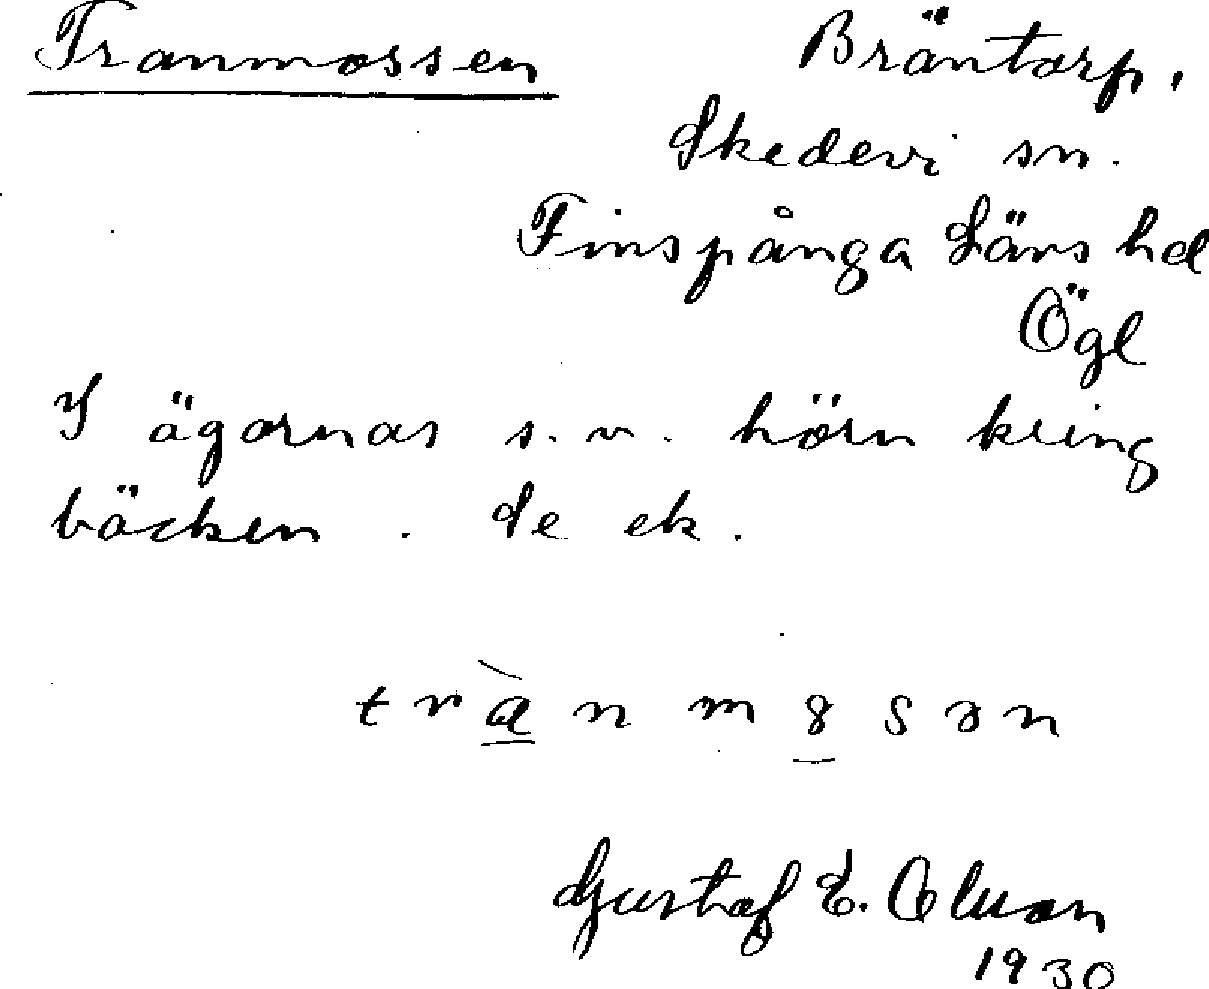 Tranmossen
Bräntorp,
Skedevi sn.
Finspånga Läns hd
Ögl
I ägornas s.v. hörn kring
bäcken. Se ek.
trànmꝏsən
Gustaf E. Olsson
1930